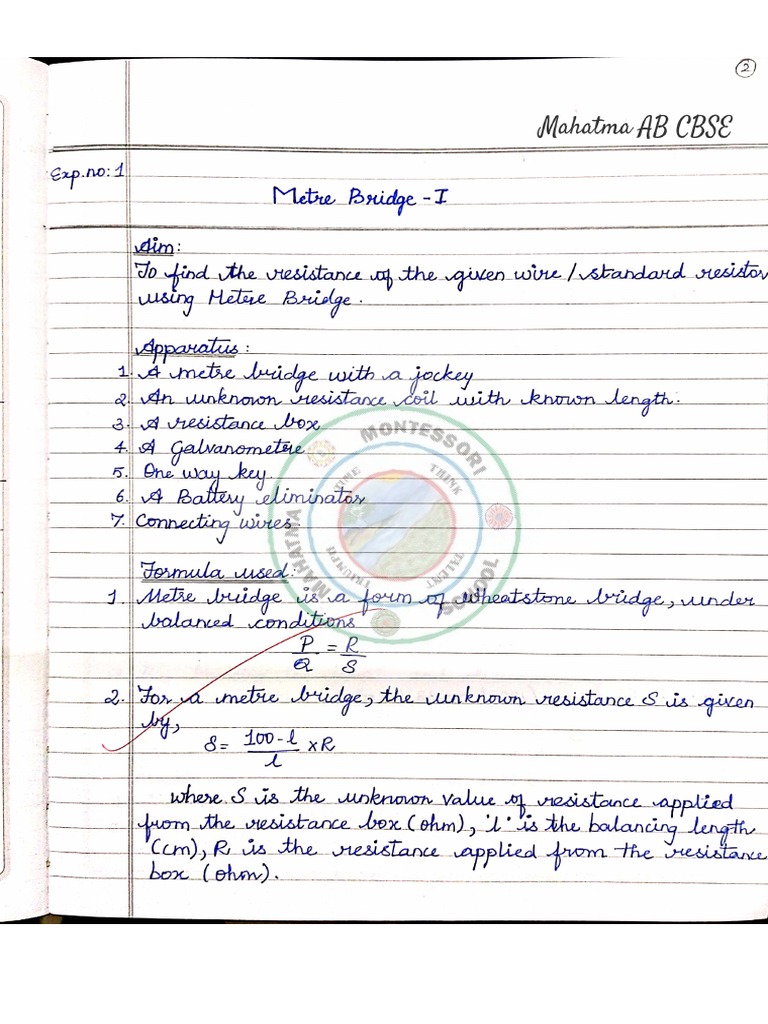 2
Mahatma AB CBSE
Exp.no: 1
Metre Bridge - I
Aim:
To find the resistance of the given wire / standard resistor
using Metere Bridge.
Apparatus:
1. A metre bridge with a jockey
2. An unknown resistance coil with known length.
3. A resistance box
4. A Galvanometere
5. One way key.
6. A Battery eliminator
7. Connecting wires.
Formula used:
1. Metre bridge is a form of wheatstone bridge, under
balanced conditions
P/Q = R/S
2. For a metre bridge, the unknown resistance S is given
by,
S = 100-l/l × R
where S is the unknown value of resistance applied
from the resistance box (ohm), 'l' is the balancing length
(cm), R is the resistance applied from the resistance
box (ohm).
MAHATMA MONTESSORI SCHOOL
TIME THINK TALENT TRIUMPH